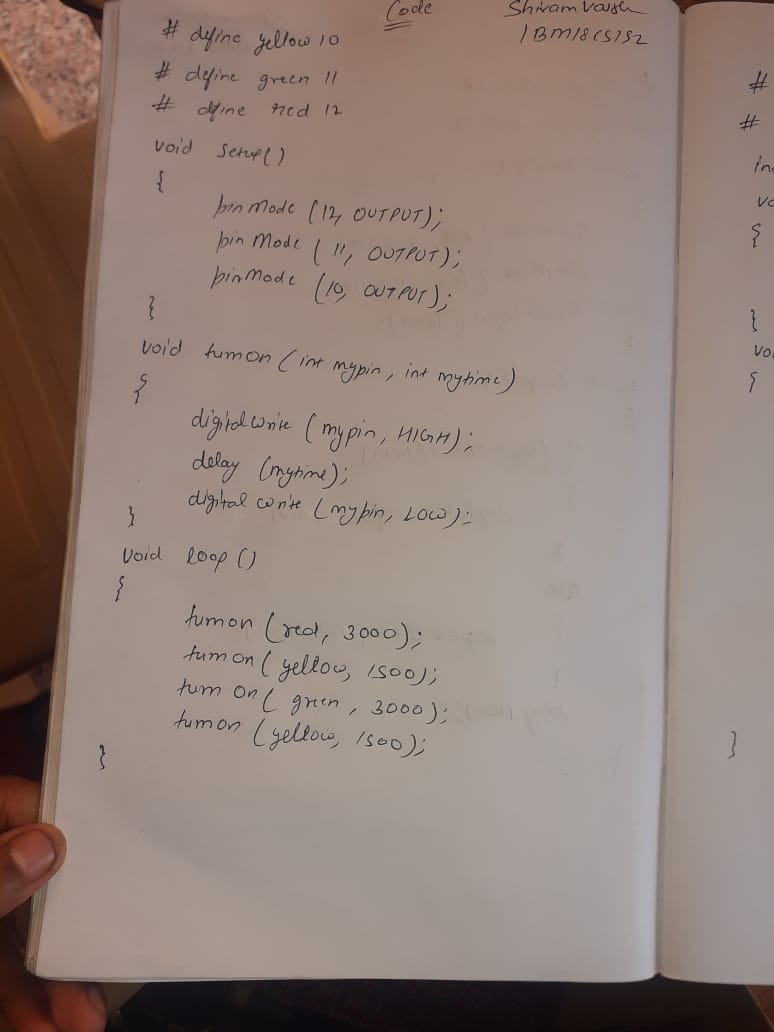 Code
Shivam Vaish
1BM18CS152
# define yellow 10
# define green 11
# define red 12
void setup()
{
pinMode (12, OUTPUT);
pinMode (11, OUTPUT);
pinMode (10, OUTPUT);
}
void turnon (int mypin, int mytime)
{
digitalwrite (mypin, HIGH);
delay (mytime);
digital write (mypin, LOW);
}
void loop ()
{
turnon (red, 3000);
turnon (yellow, 1500);
turn on ( green, 3000);
turnon (yellow, 1500);
}
#
#
{
}
{
}